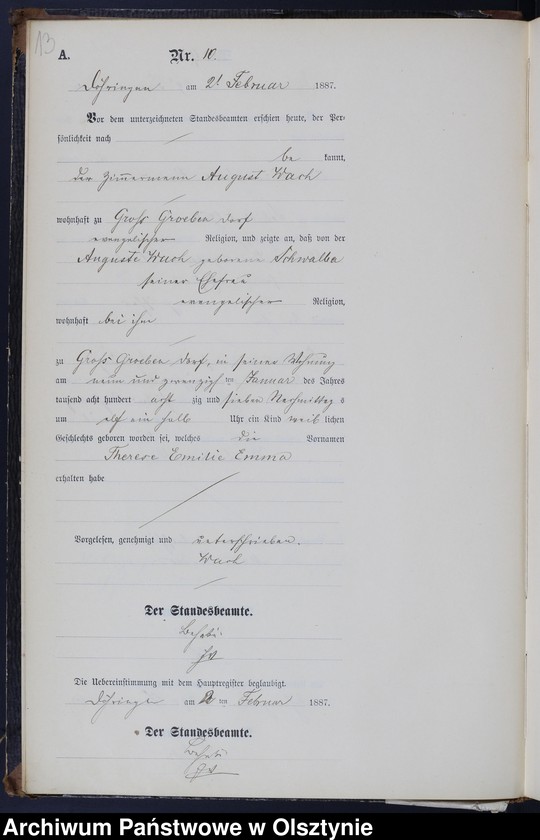 13
A. Nr. 10.
Döhringen am 2t Februar 1887.
Vor dem unterzeichneten Standesbeamten erschien heute, der Per-
sönlichkeit nach
be kannt,
der Zimmermann August Wach
wohnhaft zu Groß Groeben Dorf
evangelischer Religion, und zeigte an, daß von der
Auguste Wach geborene Schwalba
seiner Ehefrau
evangelischer Religion,
wohnhaft bei ihm
zu Groß Groeben Dorf, in seiner Wohnung
am neun und zwanzigsten Januar des Jahres
tausend acht hundert acht zig und sieben Nachmittag s
um elf ein halb Uhr ein Kind weib lichen
Geschlechts geboren worden sei, welches die Vornamen
Therese Emilie Emma
erhalten habe
Vorgelesen, genehmigt und unterschrieben.
Wach
Der Standesbeamte.
Die Uebereinstimmung mit dem Hauptregister beglaubigt.
Döhringen am 2 ten Februar 1887.
Der Standesbeamte.
Archiwum Państwowe w Olsztynie